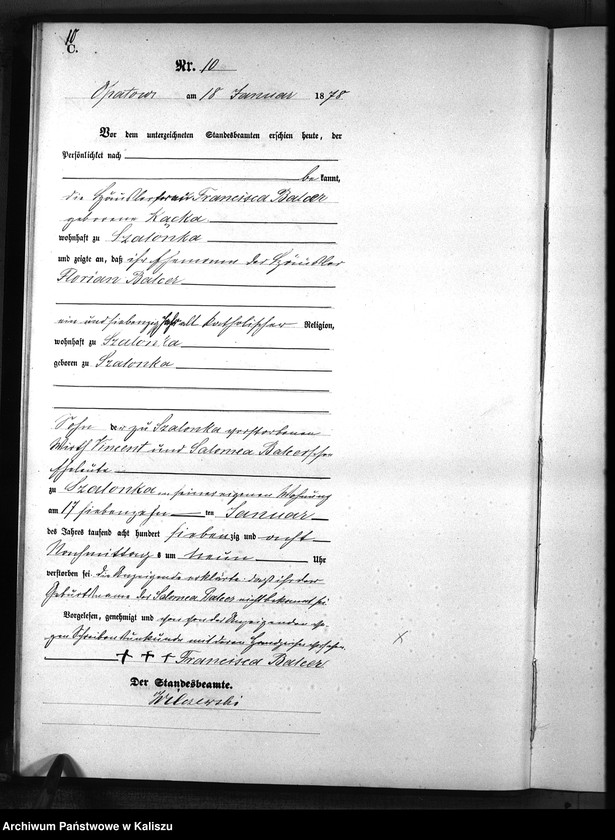 10
C.
Nr. 10
Opatow am 18 Januar 1878
Vor dem unterzeichneten Standesbeamten erschien heute, der
Persönlichkeit nach
bekannt,
die Häuslerfrau Francisca Balcer
geborene Kacka
wohnhaft zu Szalonka
und zeigte an, daß ihr Ehemann der Häusler
Florian Balcer
ein und siebenzig Jahr alt katholischer Religion,
wohnhaft zu Szalonka
geboren zu Szalonka
Sohn der zu Szalonka verstorbenen
Wirth Vincent und Salomea Balcerschen
Eheleute
zu Szalonka in seiner eigenen Wohnung
am 17 siebenzehn ten Januar
des Jahres tausend acht hundert siebenzig und acht
Nachmittags um neun Uhr
verstorben sei. Die Anzeigende erklärte daß ihr der
Geburtsname der Salomea Balcer nicht bekannt sei
Vorgelesen, genehmigt und von der Anzeigenden we-
gen Schreibensunkunde mit deren Handzeichen versehen.
+ + + Francisca Balcer
Der Standesbeamte.
Archiwum Państwowe w Kaliszu